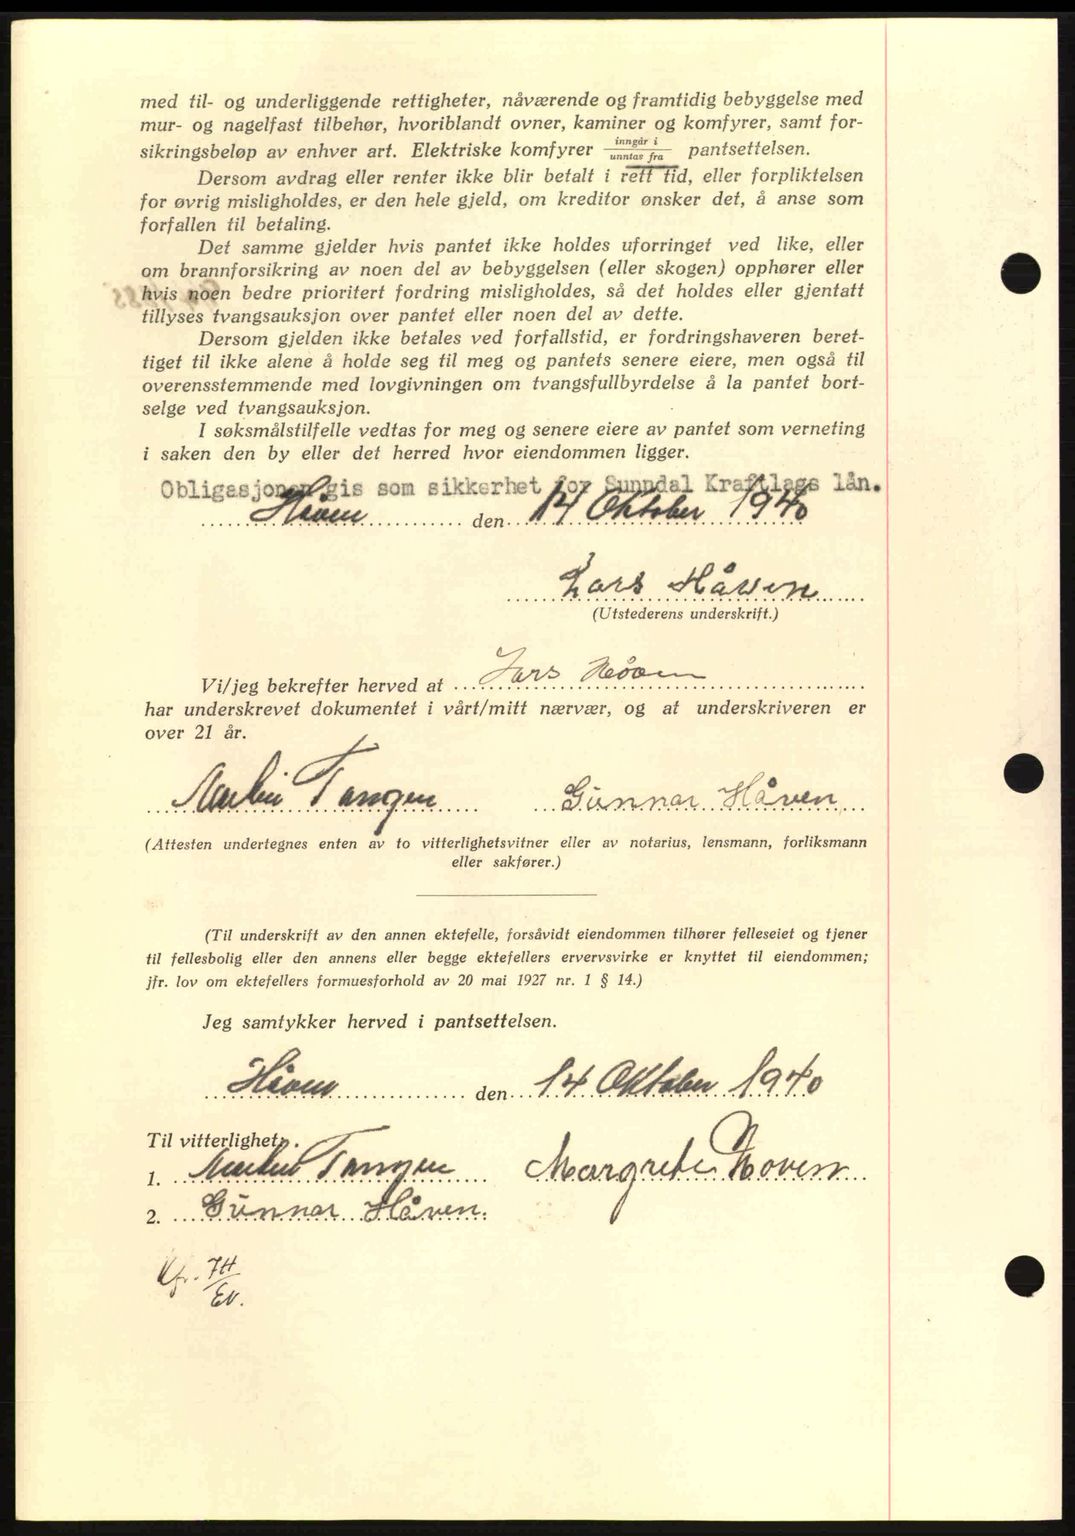 med til- og underliggende rettigheter, nåværende og framtidig bebyggelse med
mur- og nagelfast tilbehør, hvoriblandt ovner, kaminer og komfyrer, samt for-
sikringsbeløp av enhver art. Elektriske komfyrer inngår i / unntas fra pantsettelsen.
Dersom avdrag eller renter ikke blir betalt i rett tid, eller forpliktelsen
for øvrig misligholdes, er den hele gjeld, om kreditor ønsker det, å anse som
forfallen til betaling.
Det samme gjelder hvis pantet ikke holdes uforringet ved like, eller
om brannforsikring av noen del av bebyggelsen (eller skogen) opphører eller
hvis noen bedre prioritert fordring misligholdes, så det holdes eller gjentatt
tillyses tvangsauksjon over pantet eller noen del av dette.
Dersom gjelden ikke betales ved forfallstid, er fordringshaveren beret-
tiget til ikke alene å holde seg til meg og pantets senere eiere, men også til
overensstemmende med lovgivningen om tvangsfullbyrdelse å la pantet bort-
selge ved tvangsauksjon.
I søksmålstilfelle vedtas for meg og senere eiere av pantet som verneting
i saken den by eller det herred hvor eiendommen ligger.
Obligasjonen gis som sikkerhet for Sunndal Kraftlags lån.
Håven den 14 Oktober 1940
Lars Håven
(Utstederens underskrift.)
Vi/jeg bekrefter herved at Lars Håven
har underskrevet dokumentet i vårt/mitt nærvær, og at underskriveren er
over 21 år.
Tangen Gunnar Håven
(Attesten undertegnes enten av to vitterlighetsvitner eller av notarius, lensmann, forliksmann
eller sakfører.)
(Til underskrift av den annen ektefelle, forsåvidt eiendommen tilhører felleseiet og tjener
til fellesbolig eller den annens eller begge ektefellers ervervsvirke er knyttet til eiendommen;
jfr. lov om ektefellers formuesforhold av 20 mai 1927 nr. 1 § 14.)
Jeg samtykker herved i pantsettelsen.
Håven den 14 Oktober 1940
Til vitterlighet:
1. Tangen Margrete Hoven
2. Gunnar Håven.